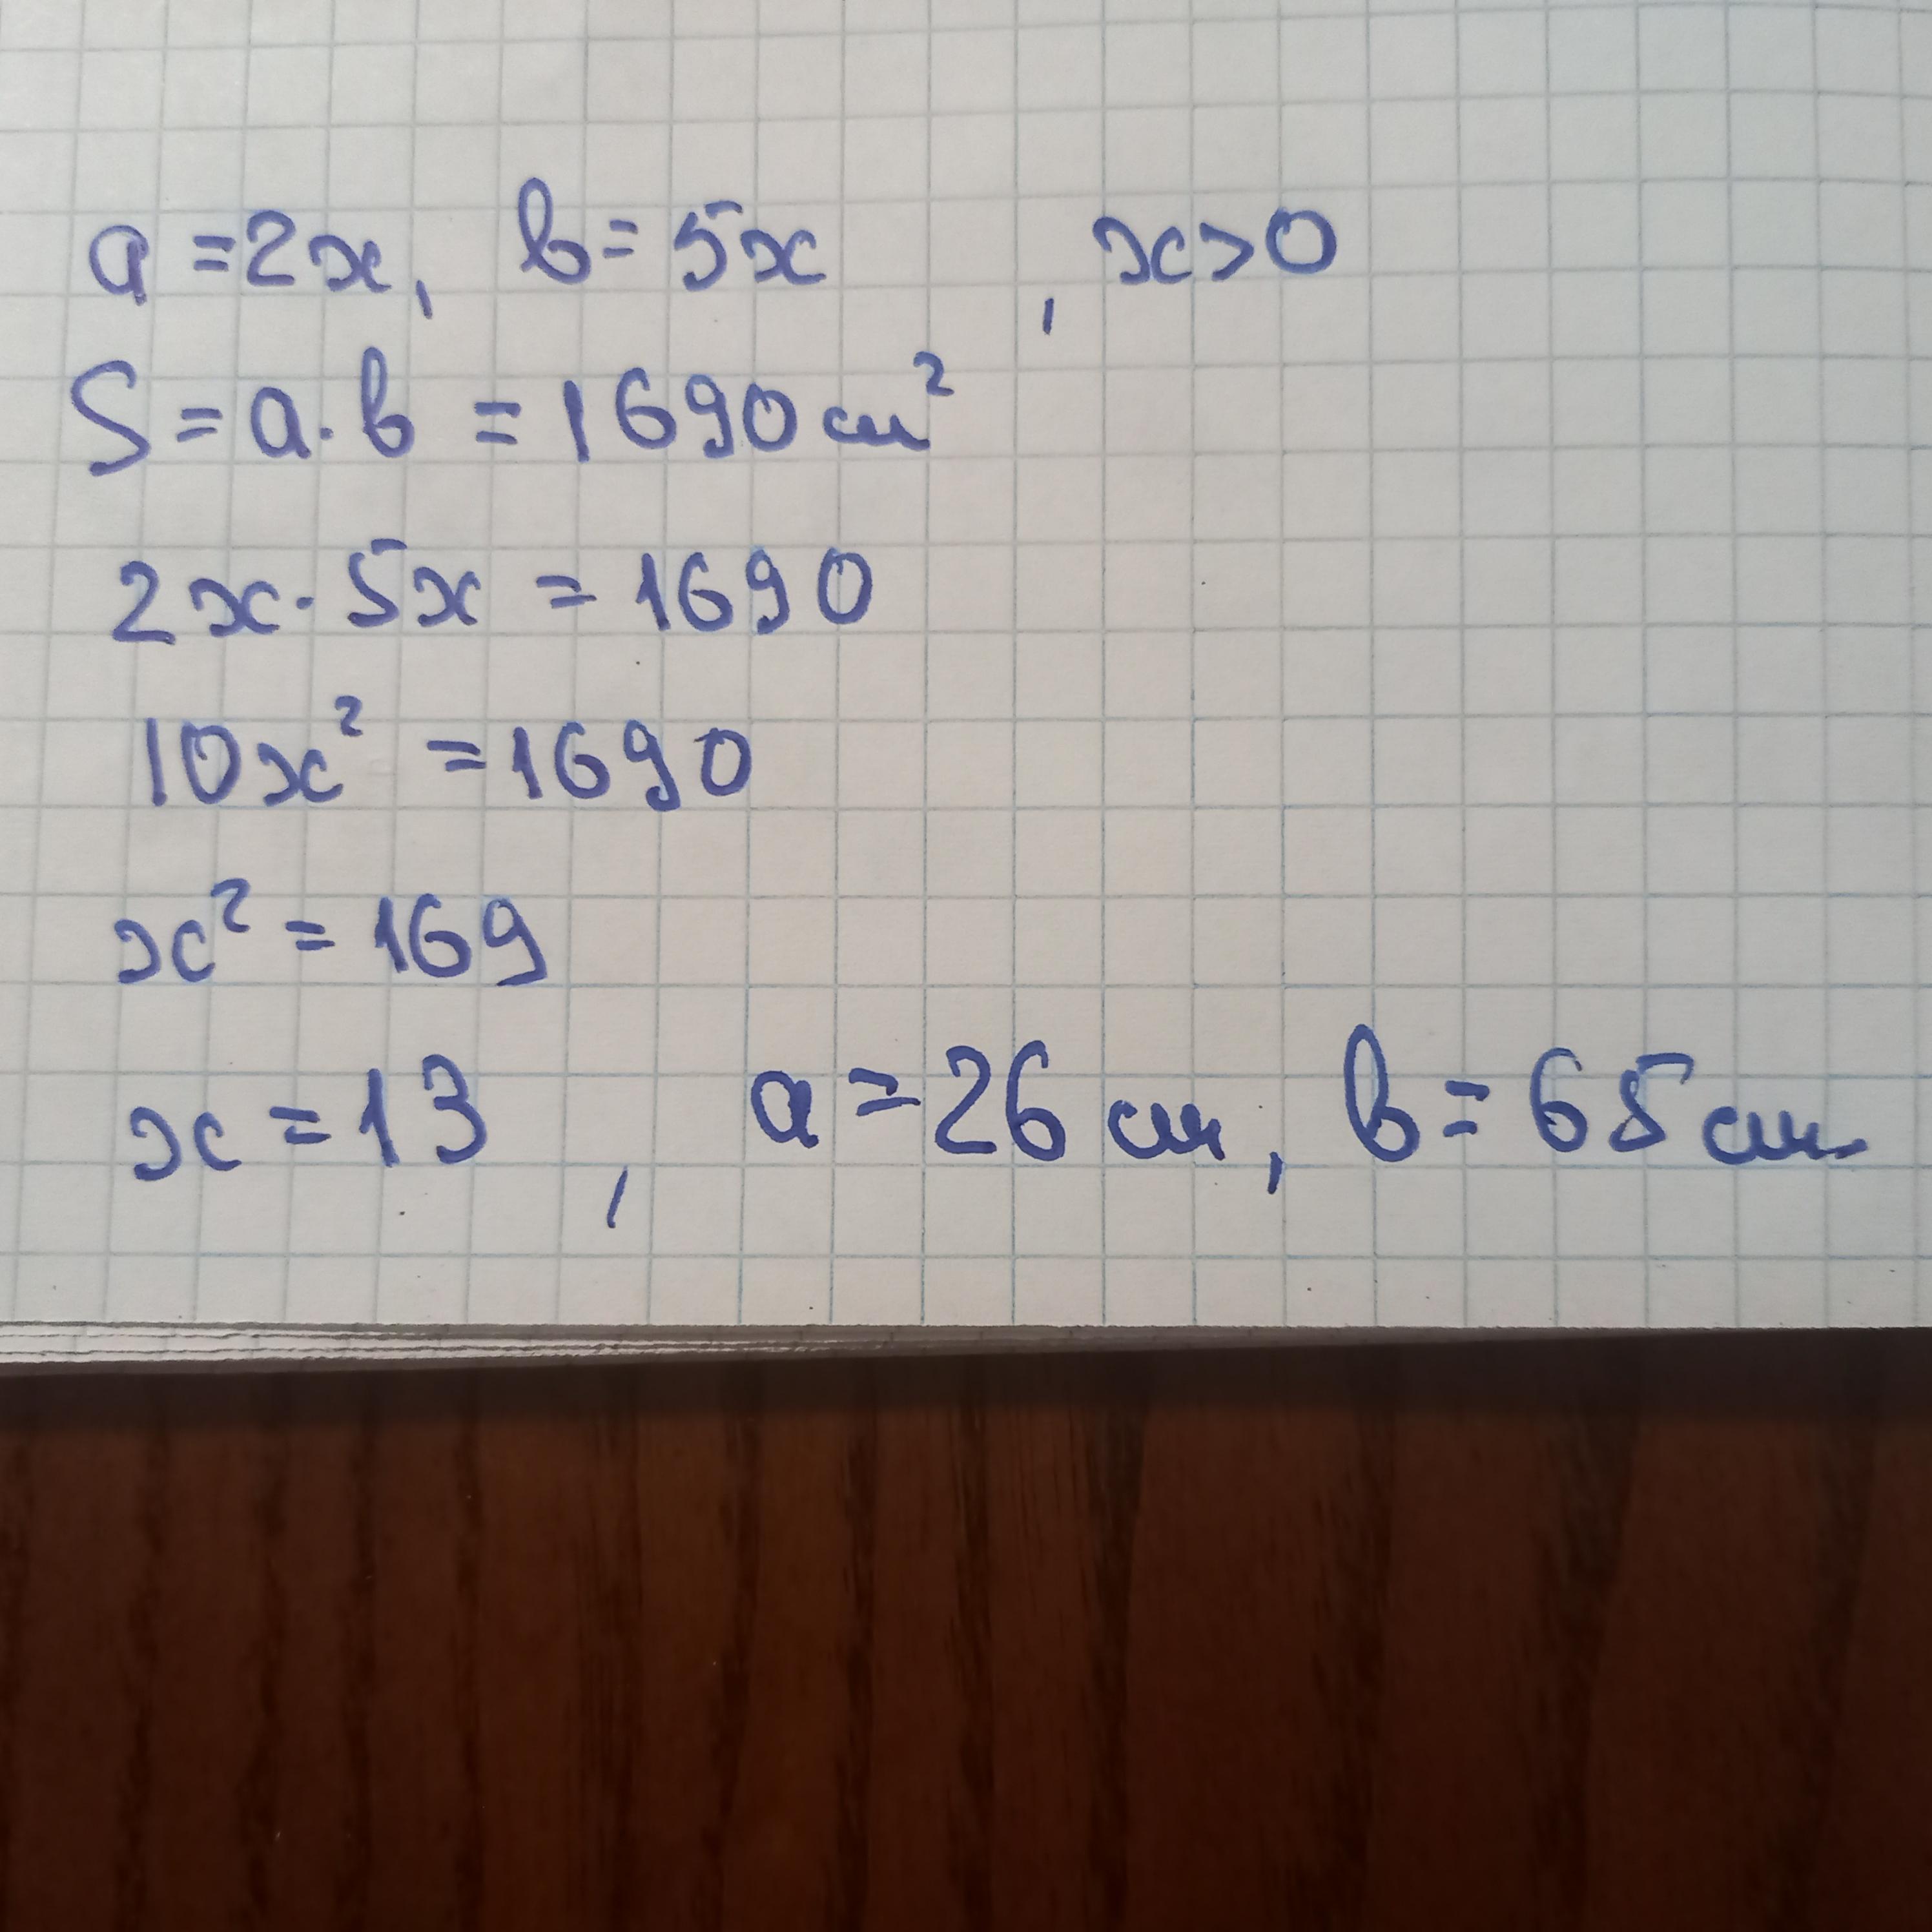 a = 2x, b = 5x , x > 0
S = a · b = 1690 см²
2x · 5x = 1690
10x² = 1690
x² = 169
x = 13 , a = 26 см, b = 65 см